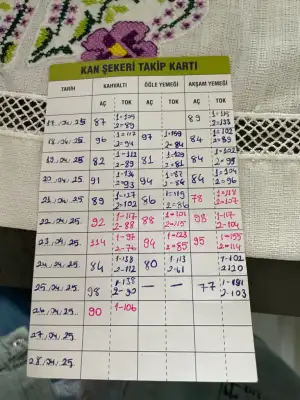 KAN ŞEKERİ TAKİP KARTI
TARİH KAHVALTI ÖĞLE YEMEĞİ AKŞAM YEMEĞİ
AÇ TOK AÇ TOK AÇ TOK
17.04.25 87 1=109 89
2=89
18.04.25 96 1=117 97 1=159 84 1=102
2=94 2=84 2=92
19.04.25. 82 1=112 81 1=129 84 1=102
2=89 2=81 2=99
20.04.25. 91 1=134 94 1=87 84 1=104
2=93 2=86 2=96
21.04.25. 89 1=138 86 1=119 78 1=118
2=102 2=86 2=107
22.04.25. 92 1-117 88 1=101 98 1-117
2-88 2=115 2-104
23.04.25. 114 1-97 94 1=123 95 1=155
2-76 2=85 2=114
24.04.25. 84 1-138 80 1-113 1-102
2-112 2-61 2120
25.04.25. 98 1-138 — — 77 1-181
2-90 2-103
26.04.25. 90 1-106
27.04.25.
28.04.25.